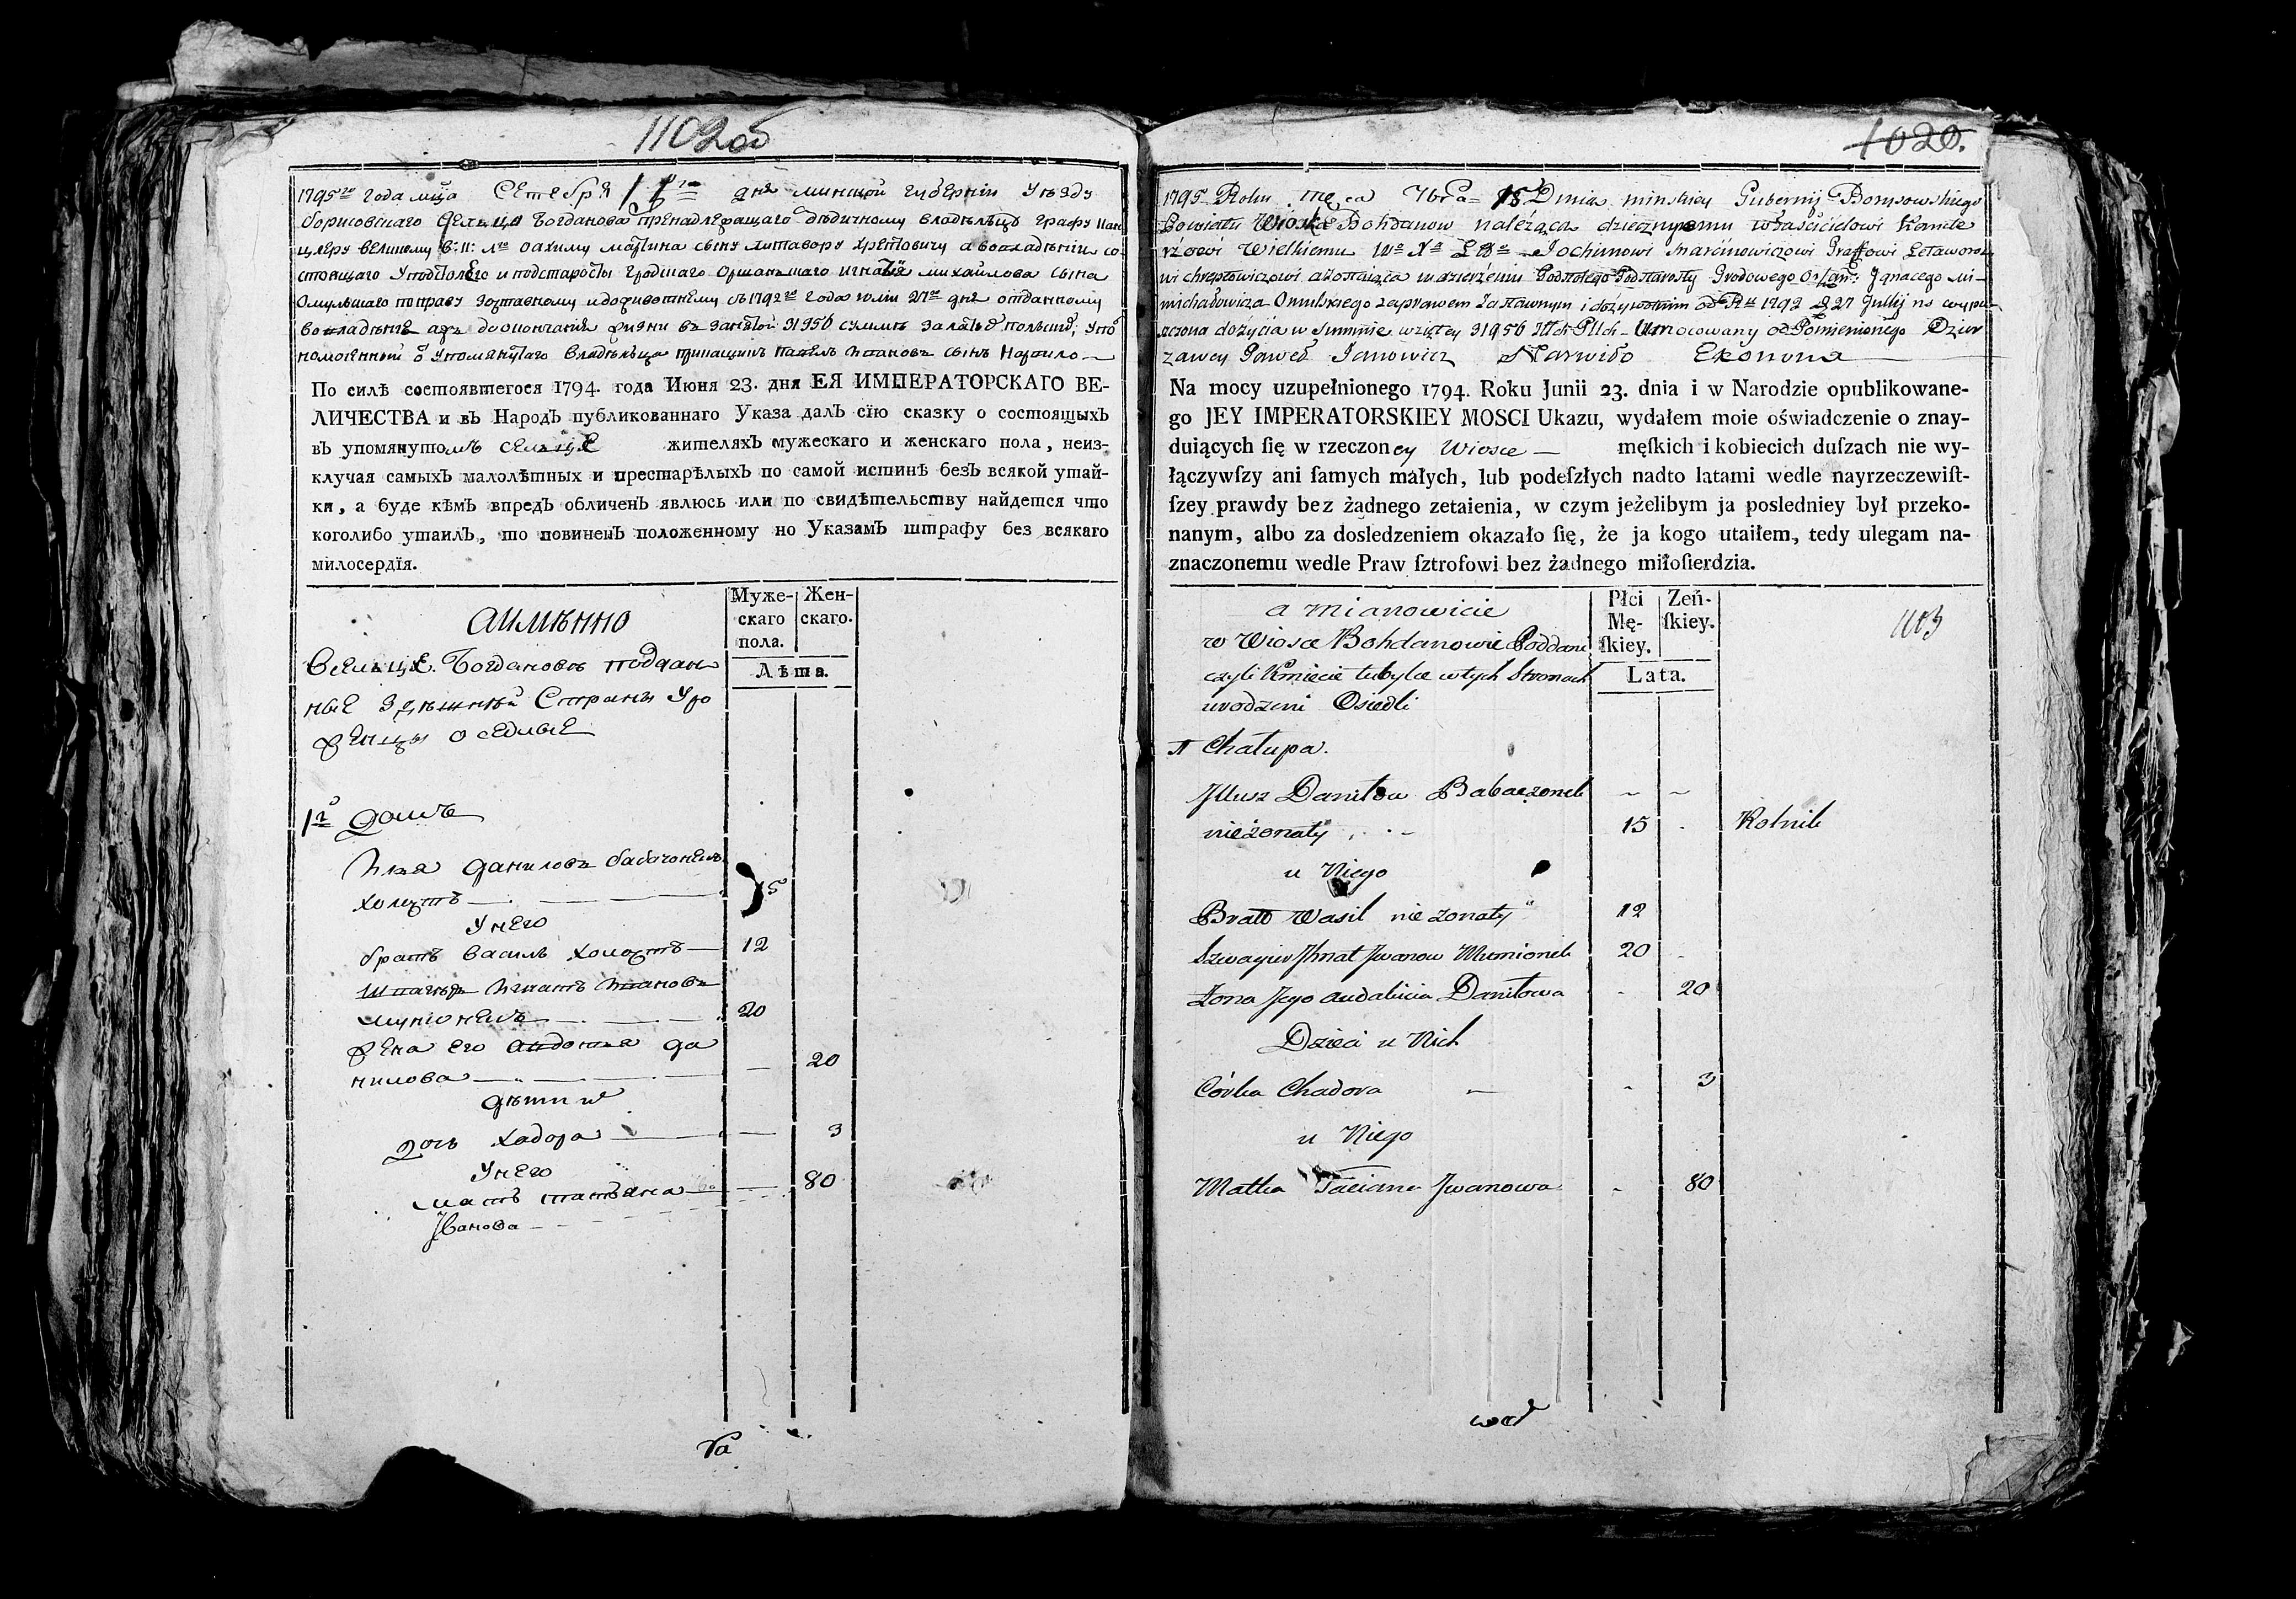 1102об
1795го года мца Сетебря 15го дня минской губернии Уезду
борисовскаго сельца Богданова принадлежащаго дедичному владельцу графу Кан
цлеру великому в: к: л го Оахиму мартина сыну литавору хрептовичу а во владении со
стоящаго у подстолего и подстаросты гродскаго оршанскаго игнатія михайлова сына
Омульскаго по праву заставному и доживотнему с 1792го года юлія 27го дня отданному
во владение аж до окончания жизни в занятой 31956 сумме залатых польских, упо
номоченный от упомянутаго владельца Павел Иванов сын Нарвило
По силѣ состоявшегося 1794. года Июня 23. дня ЕЯ ИМПЕРАТОРСКАГО ВЕ-
ЛИЧЕСТВА и въ НародЪ публикованнаго Указа далЪ сїю сказку о состоящыхЪ
въ упомянутомъ сельце жителяхЪ мужескаго и женскаго пола, неиз-
ключая самыхЪ малолѣтных и престарѣлыхЪ по самой истинѣ безЪ всякой утай-
ки, а буде кѣмЪ впредЪ обличенЪ явлюсь или по свидѣтельству найдется что
коголибо утаилЪ, то повиненЪ положенному по УказамЪ штрафу без всякаго
милосердїя.
аимѣнно
Муже-
скаго
пола.
Жен-
скаго.
Лѣта.
Всельце Богданове поддан
ные здешней Страны Уро
женцы оседлые
1й Домъ
Илья Данилов бабачонек
холостъ 15
Унего
братъ василь холостъ 12
Игнатъ Иванов
мунионекъ 20
жена его авдотья да
нилова 20
дети их
дочь хадора 3
Унего
мать татьяна 80
Іванова
Ва
1020.
1795 Roku męca 7bra 15 Dnia minskiey Gubernij Borysowskiego
Powiatu Wioska Bohdanow należąca dziedzicznemu właścicielowi Kancle
rzowi Wielkiemu Wo Xa Lgo Jochimowi marcinowiczowi Graffowi Letaworo
wi chreptowiczowi a zostaiąca w dzierżeniu Podstolego Podstarosty Grodowego Orszań: Jgnacego Mi-
michałowicza Omulskiego zaprawem Zastawnym i dożywotnim od Rku 1792 D 27 Julij na wypu
szczona dożycia w Summie wziętey 31956 Złch Plch Umocowany od Pomienionego Dzier
zawcy Paweł Janowicz Narwiło Ekonoma
Na mocy uzupełnionego 1794. Roku Junii 23. dnia i w Narodzie opublikowane-
go JEY IMPERATORSKIEY MOSCI Ukazu, wydałem moie oświadczenie o znay-
duiących ſię w rzeczoney Wiosce męſkich i kobiecich duſzach nie wy-
łączywſzy ani ſamych małych, lub podeſzłych nadto latami wedle nayrzeczewiſt-
ſzey prawdy bez żadnego zetaienia, w czym jeżelibym ja posledniey był przeko-
nanym, albo za dosledzeniem okazało ſię, że ja kogo utaiłem, tedy ulegam na-
znaczonemu wedle Praw ſztrofowi bez żadnego miłoſierdzia.
a mianowicie
Płci
Mę-
ſkiey.
Zeń-
ſkiey.
Lata.
1103
w Wiosce Bohdanowie Poddani
czyli Kmiecie tubylce w tych Stronach
urodzeni Osiedli
Chałupa.
Jllusz Daniłow Babaczonek
nieżonaty 15 Rolnik
u Niego
Bratt Wasil nieżonaty 12
Szwagier Jhnat Jwanow Munionek 20
Żona Jego audakicia Daniłowa 20
Dzieci u Nich
Córka Chadora 3
u Niego
Matka Taciana Jwanowa 80
wał